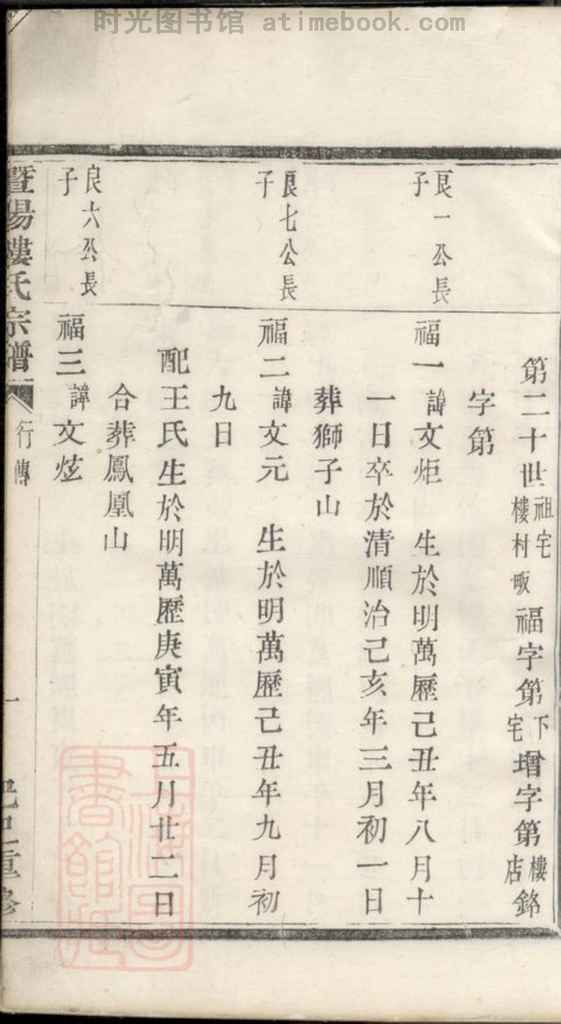 时光图书馆 atimebook.com
第二十世 祖宅樓村畈 福字第 下宅 增字第 樓店 銘
字第
良一公長子
福一 諱文炬 生於明萬歷己丑年八月十
一日卒於清順治己亥年三月初一日
葬獅子山
良七公長子
福二 諱文元 生於明萬歷己丑年九月初
九日
配王氏生於明萬歷庚寅年五月廿二日
合葬鳳凰山
良六公長子
福三 諱文炫
暨陽樓氏宗譜 行傳 一 重修
上海圖書館藏